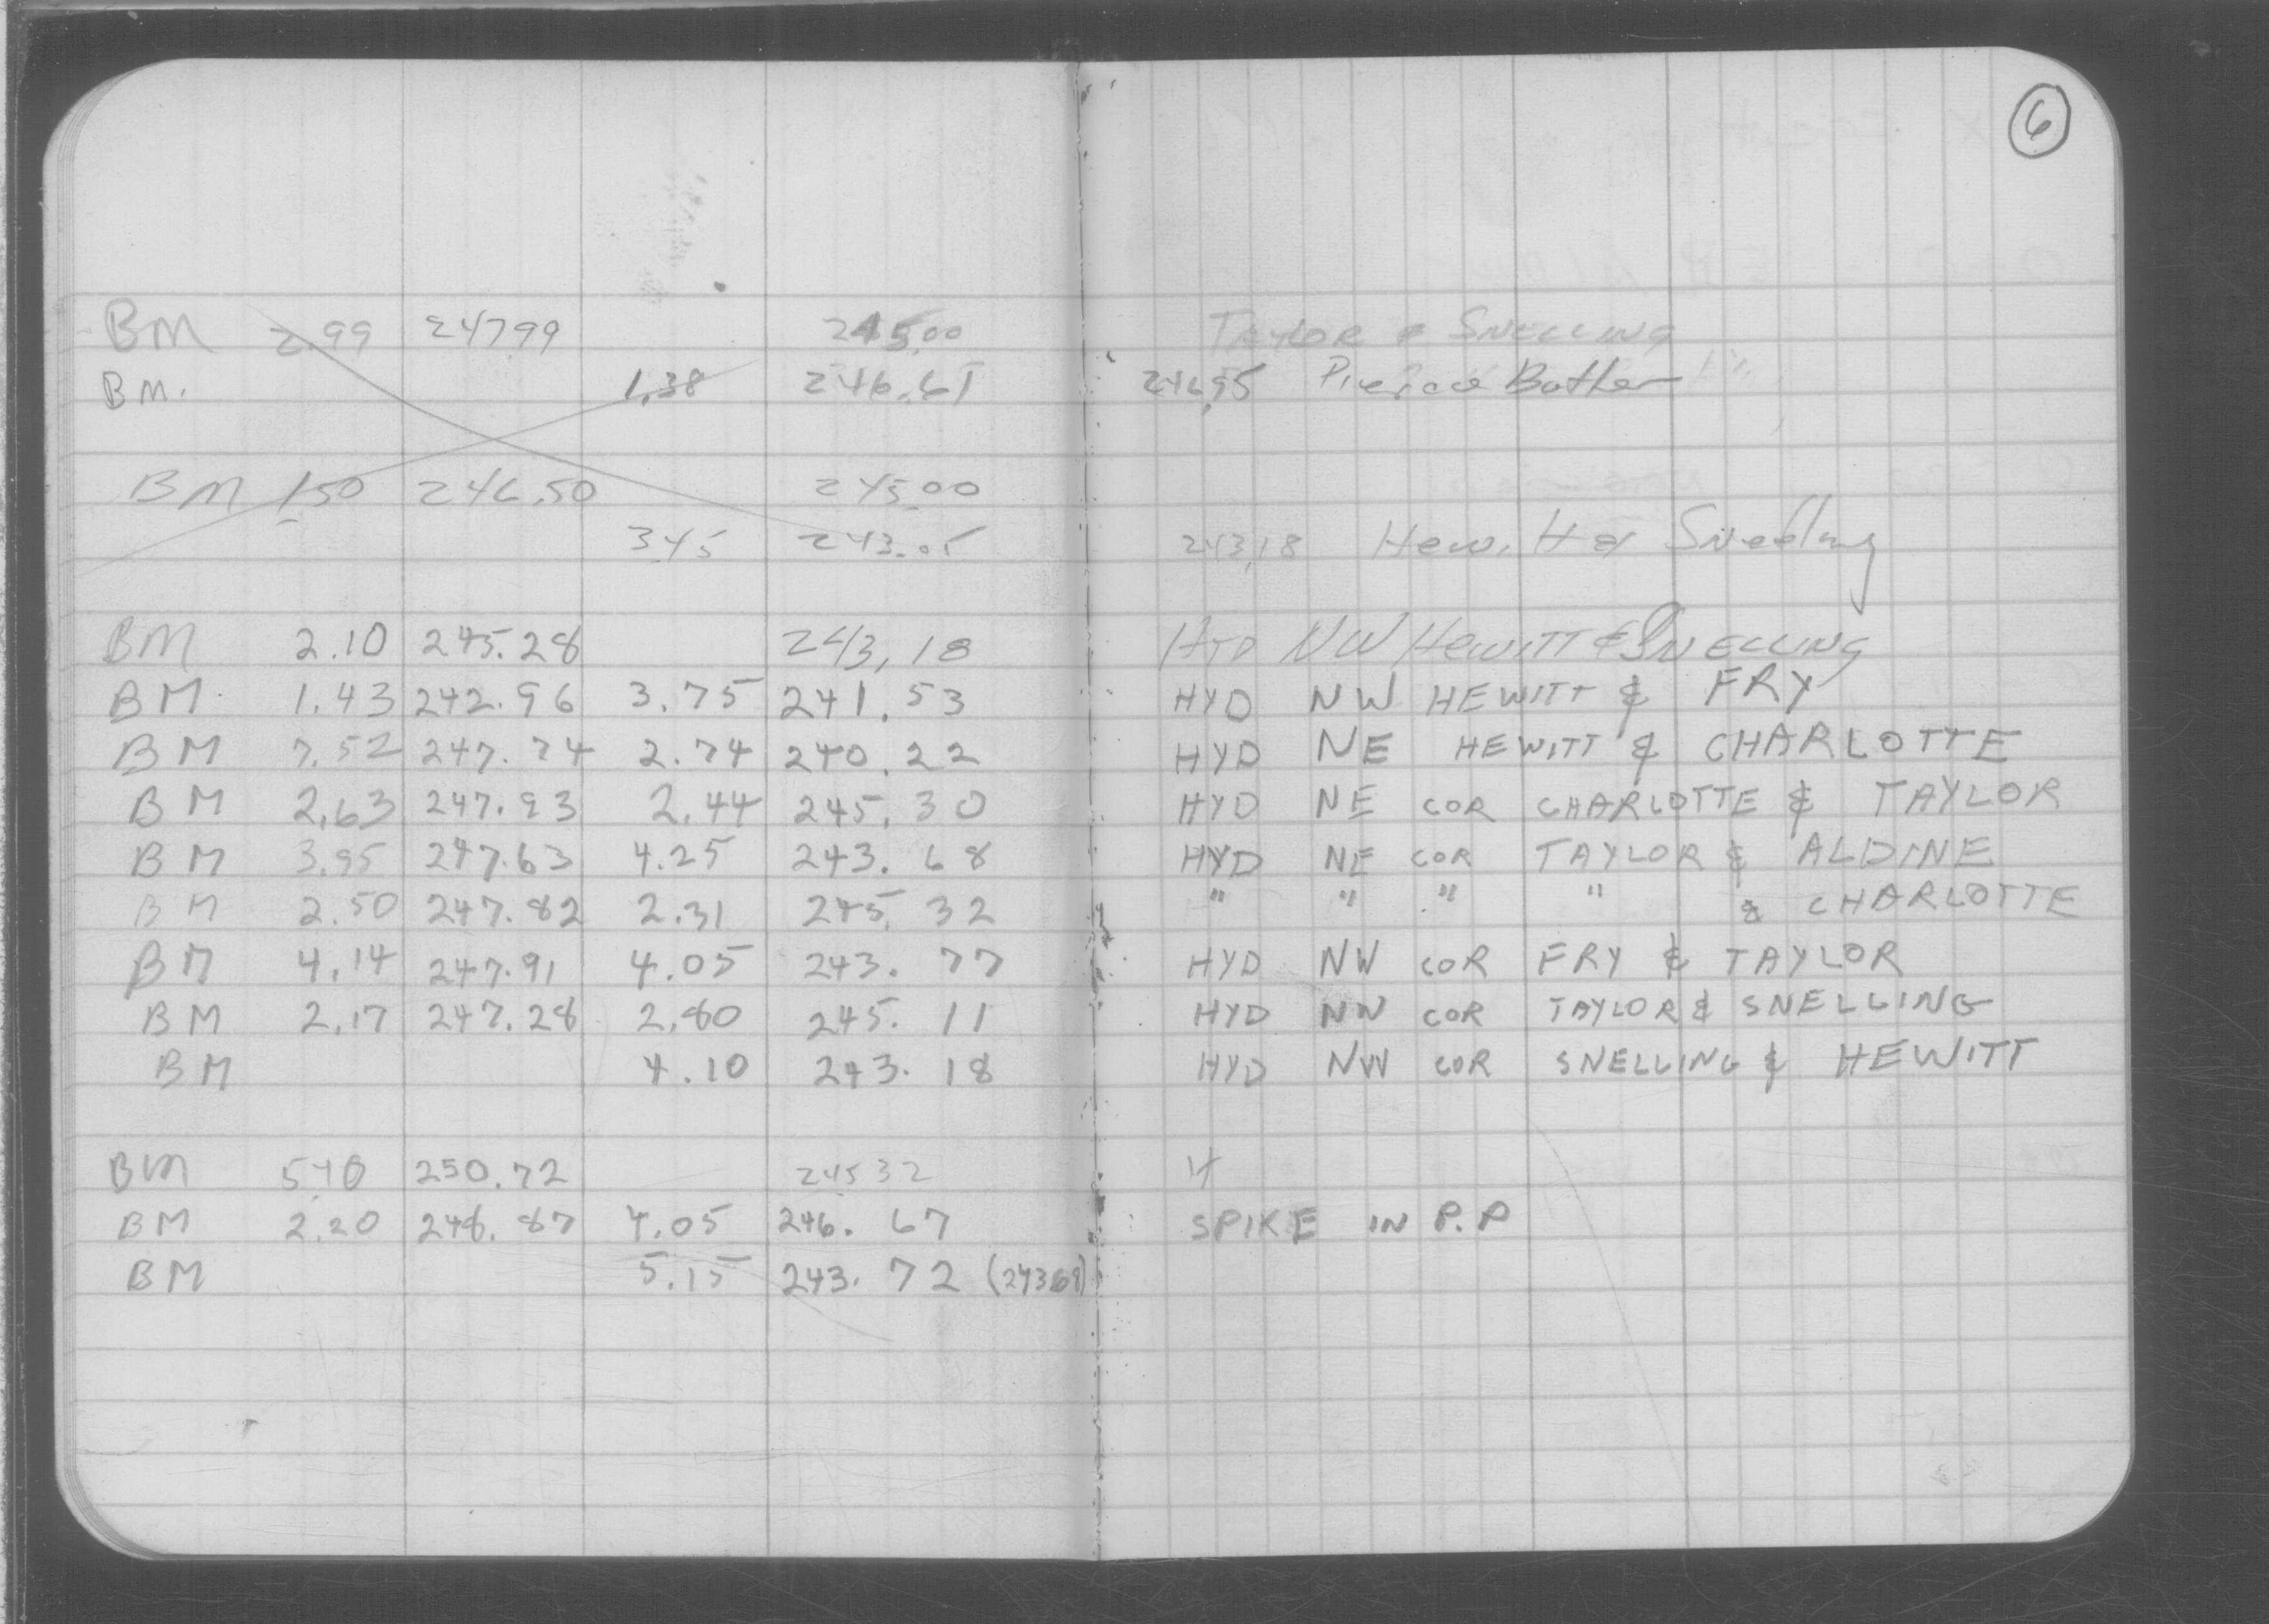 6
BM 2.99 247.99 245.00 TAYLOR & SNELLING
BM. 1.38 246.61 246.95 Pierce Butler
BM 1.50 246.50 245.00
3.45 243.05 243.18 Hewitt & Snelling
BM 2.10 245.28 243.18 HYD NW HEWITT & SNELLING
BM. 1.43 242.96 3.75 241.53 HYD NW HEWITT & FRY
BM 7.52 247.74 2.74 240.22 HYD NE HEWITT & CHARLOTTE
BM 2.63 247.93 2.44 245.30 HYD NE COR CHARLOTTE & TAYLOR
BM 3.95 247.63 4.25 243.68 HYD NE COR TAYLOR & ALDINE
BM 2.50 247.82 2.31 245.32 " " " " & CHARLOTTE
BM 4.14 247.91 4.05 243.77 HYD NW COR FRY & TAYLOR
BM 2.17 247.28 2.80 245.11 HYD NW COR TAYLOR & SNELLING
BM 4.10 243.18 HYD NW COR SNELLING & HEWITT
BM 5.40 250.72 245.32
BM 2.20 248.87 4.05 246.67 SPIKE IN P.P
BM 5.15 243.72 (243.69)